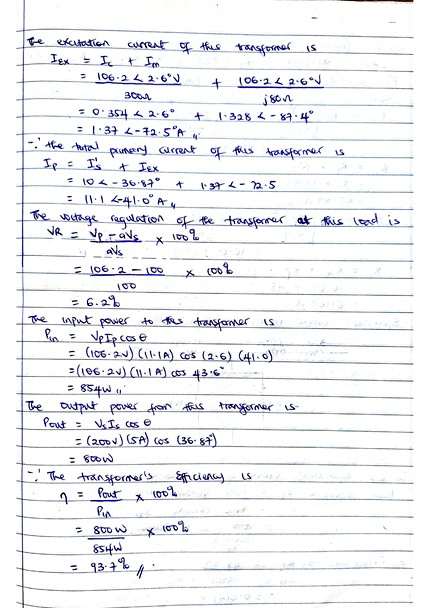 The excitation current of this transformer is
IEX = Ic + Im
= 106.2 < 2.6° V / 300Ω + 106.2 < 2.6° V / j80Ω
= 0.354 < 2.6° + 1.328 < -87.4°
= 1.37 < -72.5° A //
∵ the total primary current of this transformer is
Ip = I's + IEX
= 10 < -36.87° + 1.37 < -72.5
= 11.1 < -41.0° A //
The voltage regulation of the transformer at this load is
VR = Vp - aVs / aVs × 100%
= 106.2 - 100 / 100 × 100%
= 6.2%
The input power to this transformer is
Pin = VpIp cos θ
= (106.2V) (11.1A) cos (2.6) (41.0)
= (106.2V) (11.1A) cos 43.6°
= 854W //
The output power from this transformer is
Pout = VsIs cos θ
= (200V) (5A) cos (36.87°)
= 800W
∵ The transformer's Efficiency is
η = Pout / Pin × 100%
= 800W / 854W × 100%
= 93.7% //